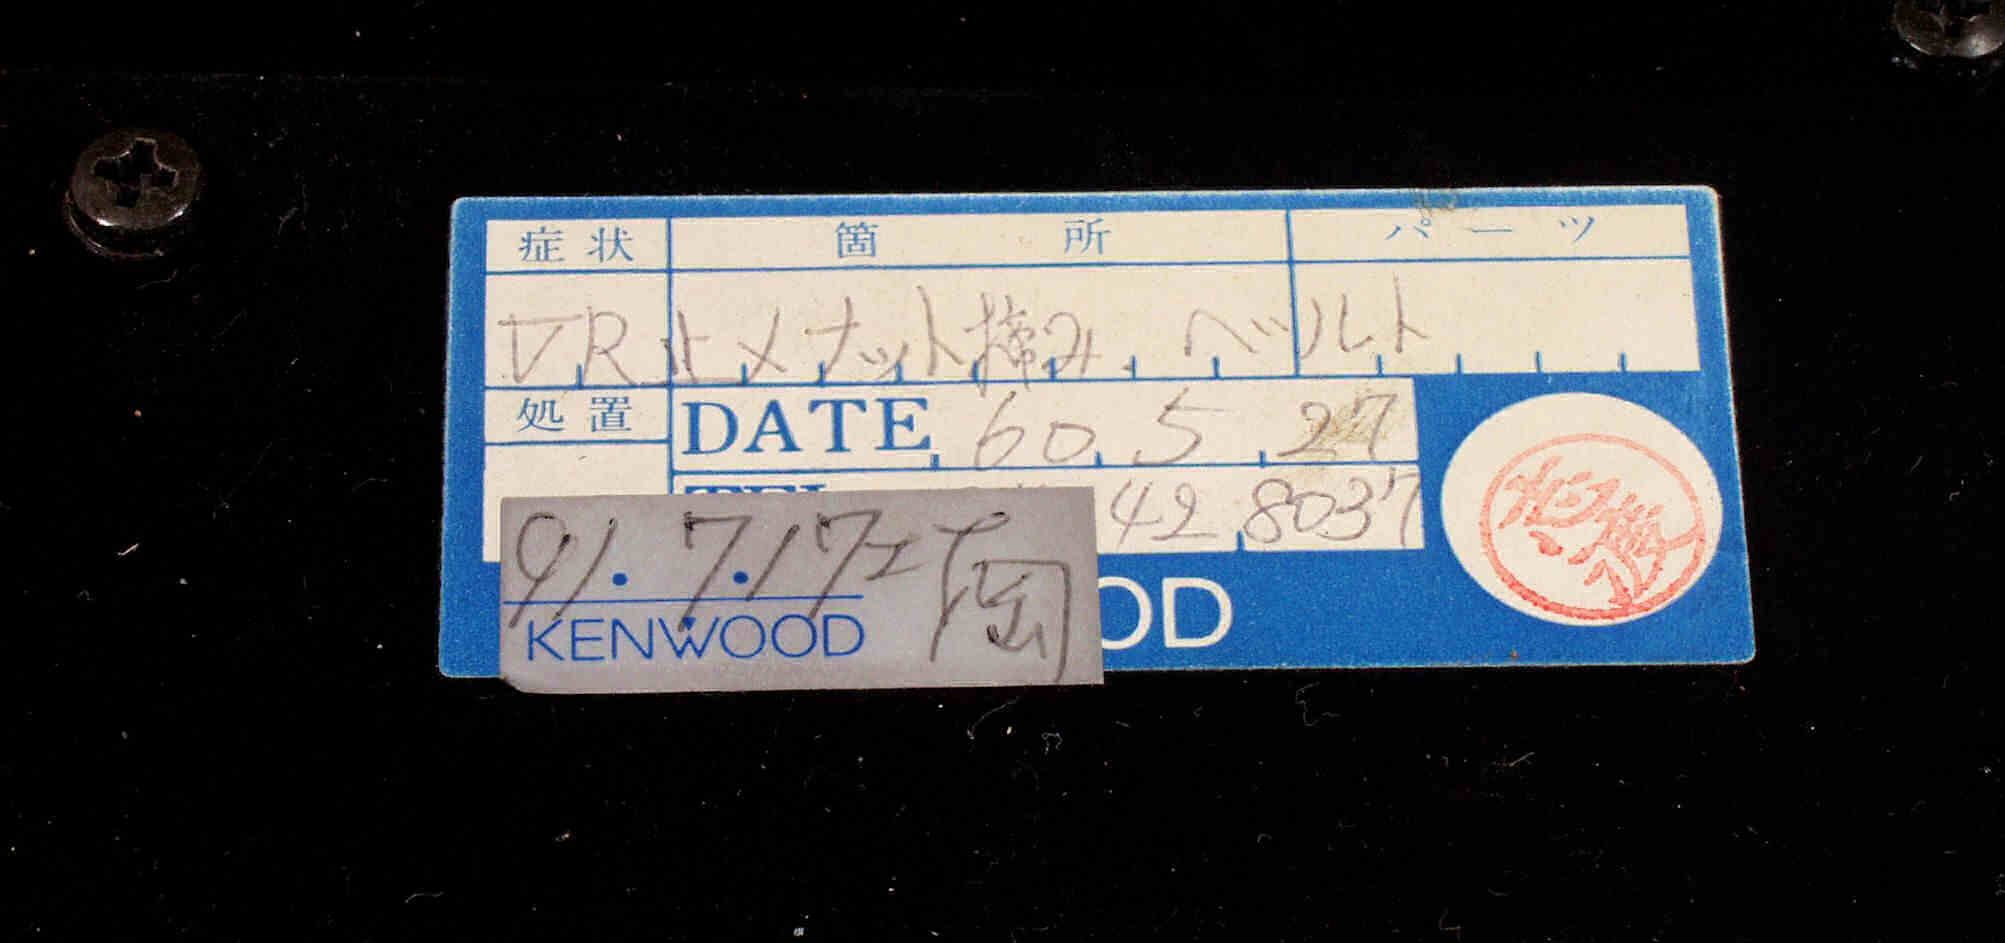 症状 箇所 パーツ
VR止メナット締み、ベルト
処置 DATE 60. 5. 27
42 8037
91. 7. 17
KENWOOD
OD